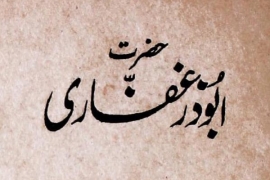 حضرت
ابُوذر غفاریؓ